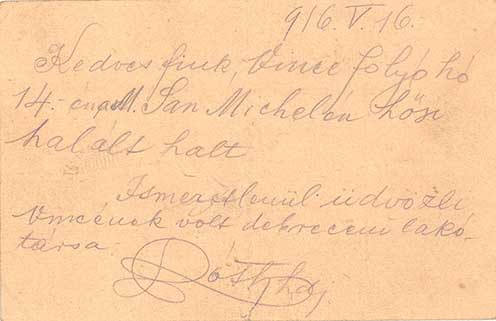 916. V. 16.
Kedves fiuk, Vince folyó hó
14.-én a M. San Michelén hősi
halált halt
Ismeretlenül üdvözli
Vincének volt debreceni lakó-
társa